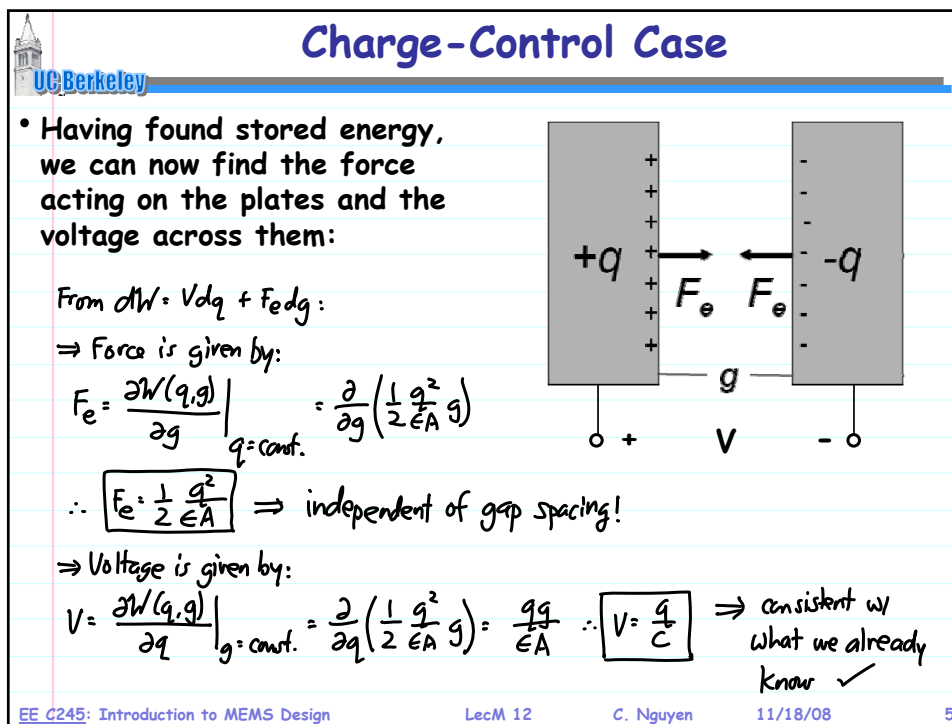 Charge-Control Case
UC Berkeley
• Having found stored energy,
we can now find the force
acting on the plates and the
voltage across them:
From dW = Vdq + Fedg:
⇒ Force is given by:
Fe = ∂W(q,g)/∂g |q=const. = ∂/∂g (1/2 q²/εA g)
∴ Fe = 1/2 q²/εA ⇒ independent of gap spacing!
⇒ Voltage is given by:
V = ∂W(q,g)/∂q |g=const. = ∂/∂q (1/2 q²/εA g) = qg/εA ∴ V = q/C ⇒ consistent w/
what we already
know ✓
+ -
+ -
+ -
+q + - -q
+ Fe Fe -
+ -
+ -
g
+ V -
EE C245: Introduction to MEMS Design LecM 12 C. Nguyen 11/18/08 5